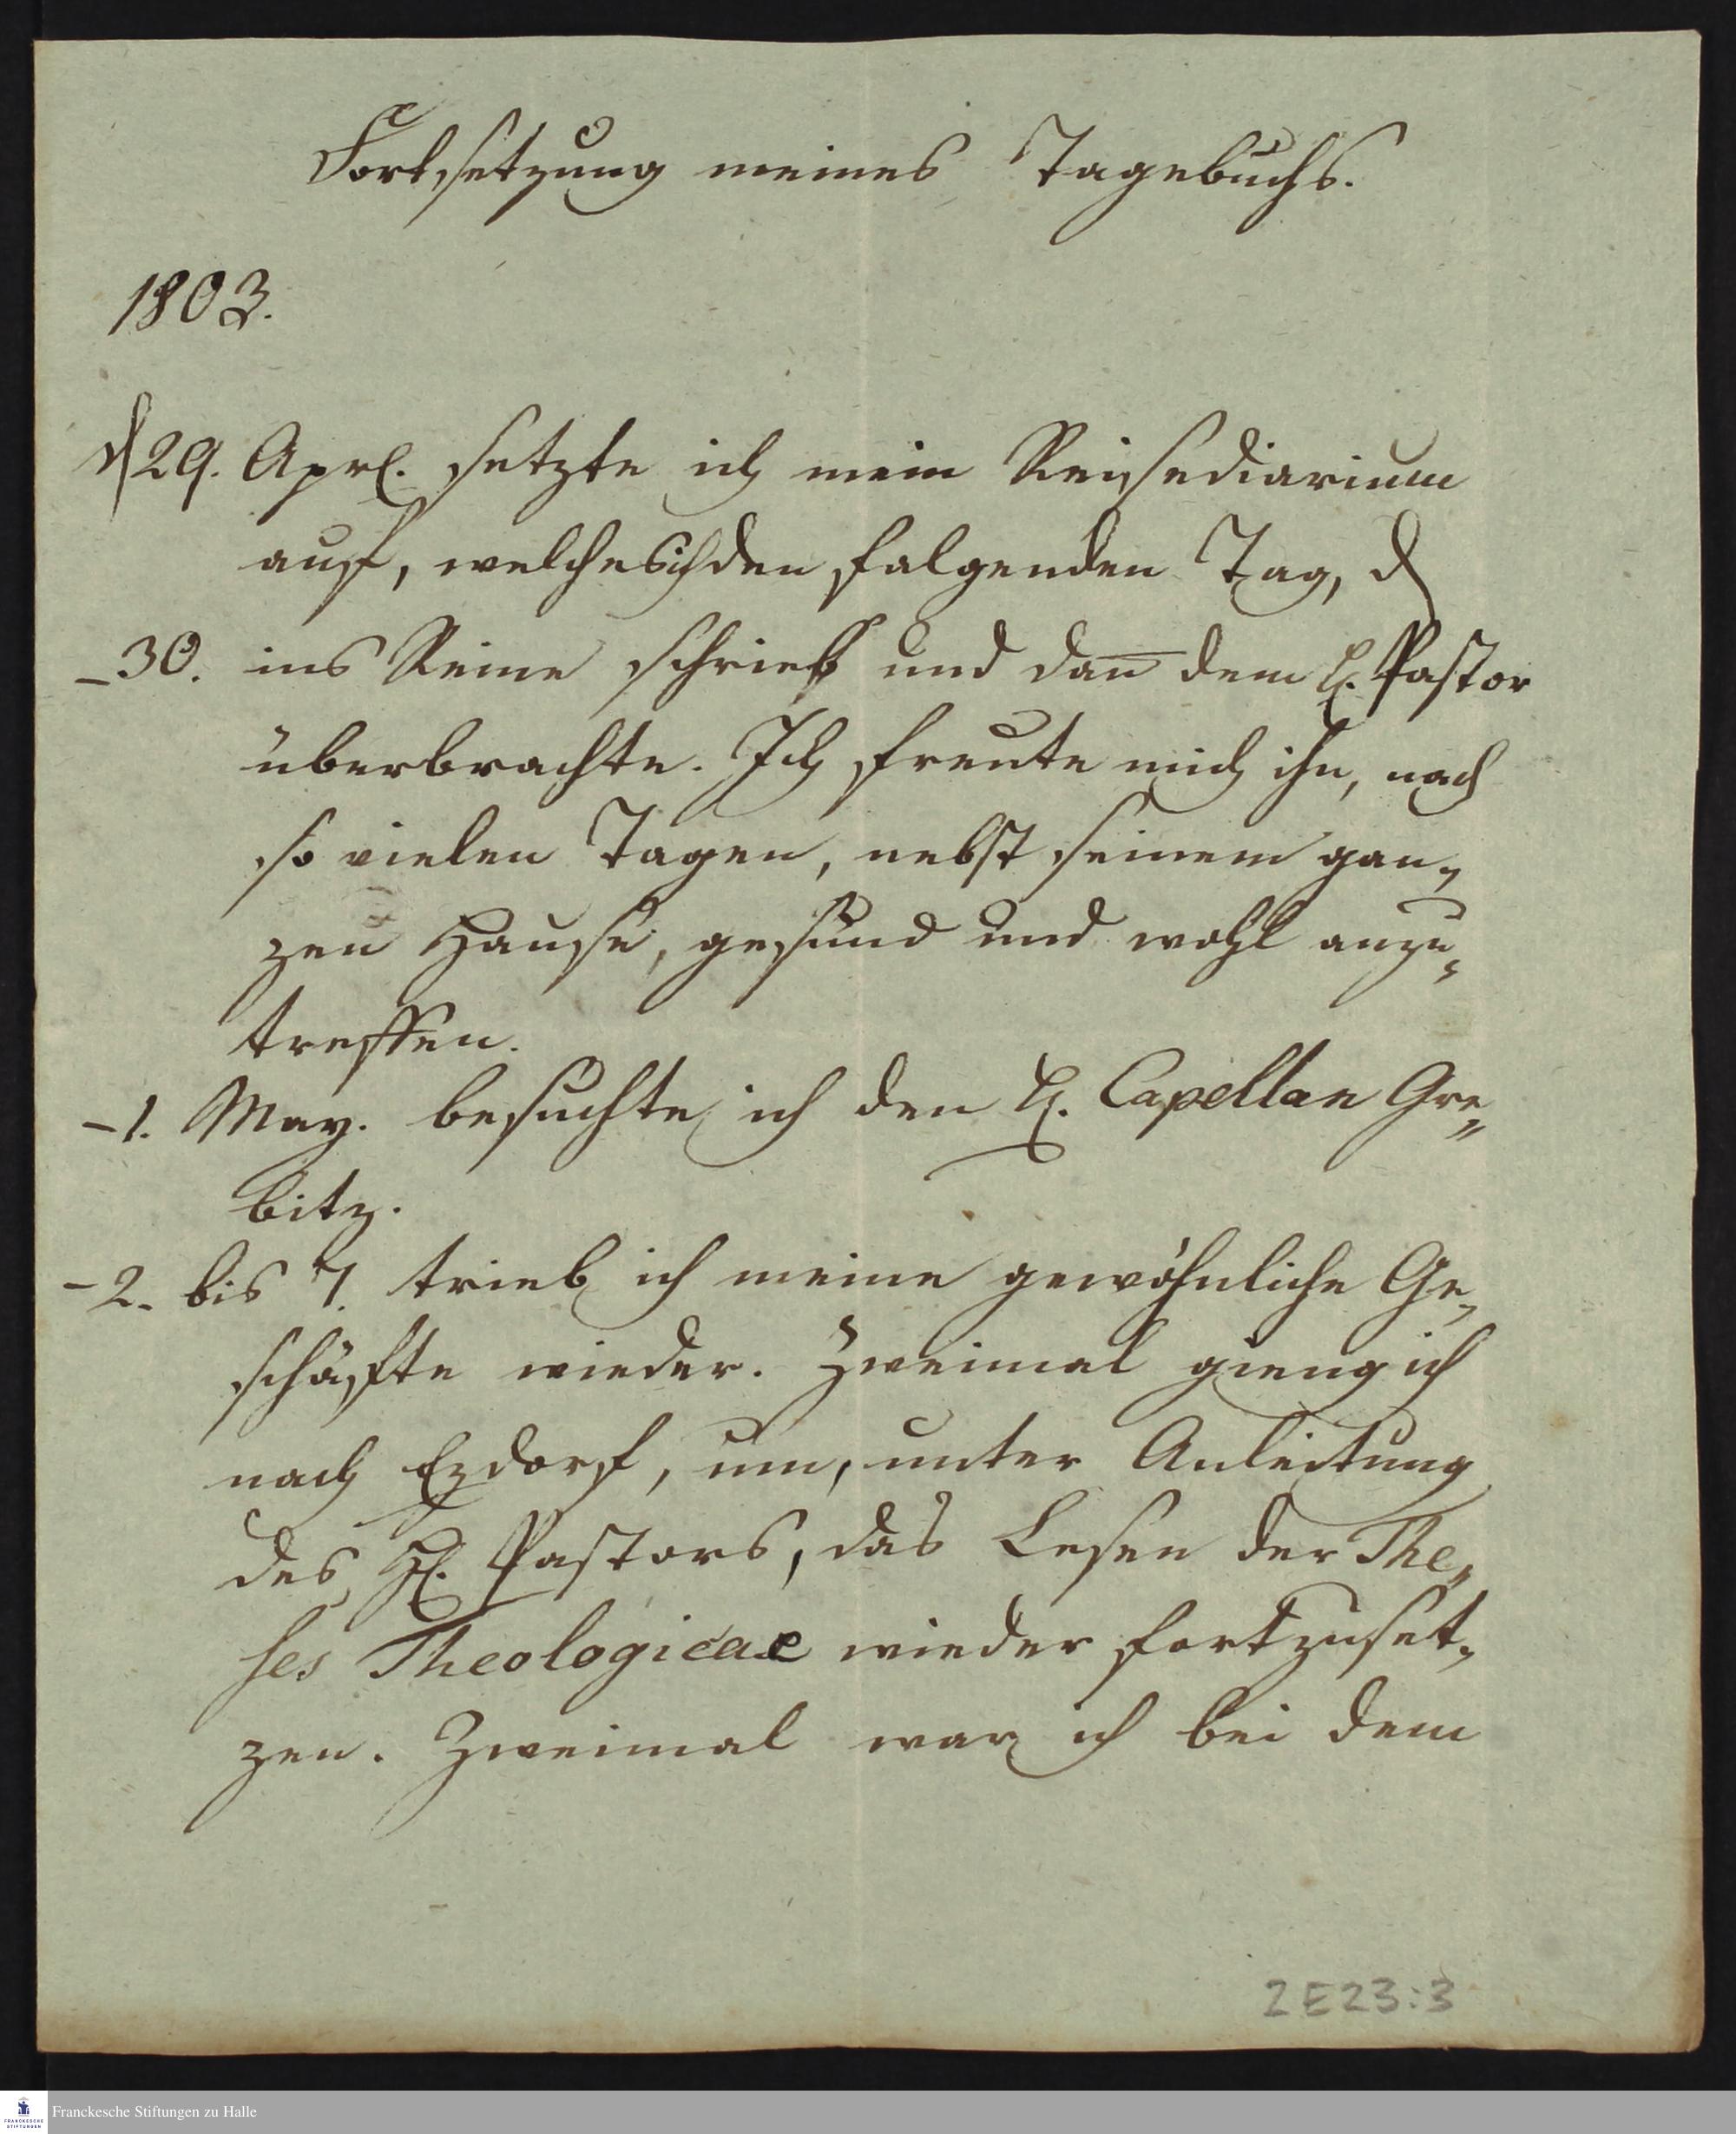 Fortsetzung meines Tagebuchs.
1803.
d 29. Aprl. setzte ich mein Reisediarium
auf, welches ich den folgenden Tag, d
- 30. ins Reine schrieb und dan̅ dem H. Pastor
überbrachte. Ich freute mich ihn, nach
so vielen Tagen, nebst seinem gan„
zen Hause, gesund und wohl anzu„
treffen.
- 1. May. besuchte ich den H. Capellan Gre„
bitz.
- 2. bis 7. trieb ich meine gewöhnliche Ge„
schäfte wieder. Zweimal gieng ich
nach Ezdorf, um, unter Anleitung
des H. Pastors, das Lesen der The„
ses Theologicae wieder fortzuset„
zen. Zweimal war ich bei dem
2E23:3
FRANCKESCHE STIFTUNGEN
Franckesche Stiftungen zu Halle